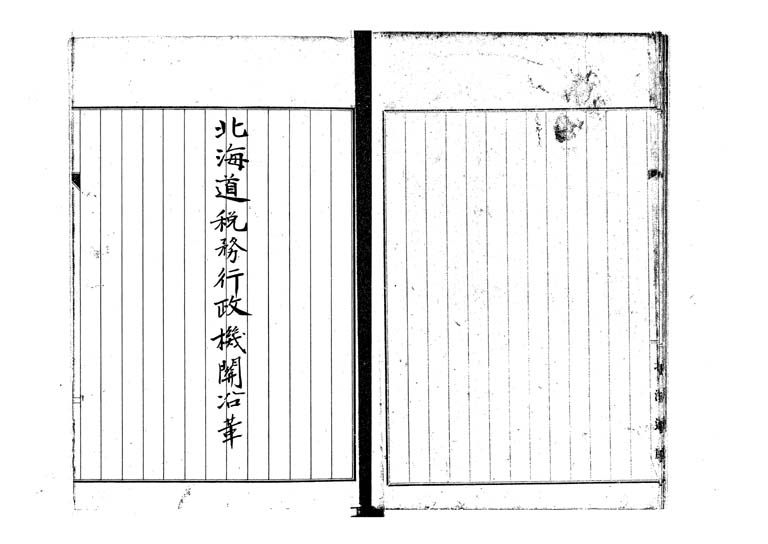 北海道税務行政機関沿革